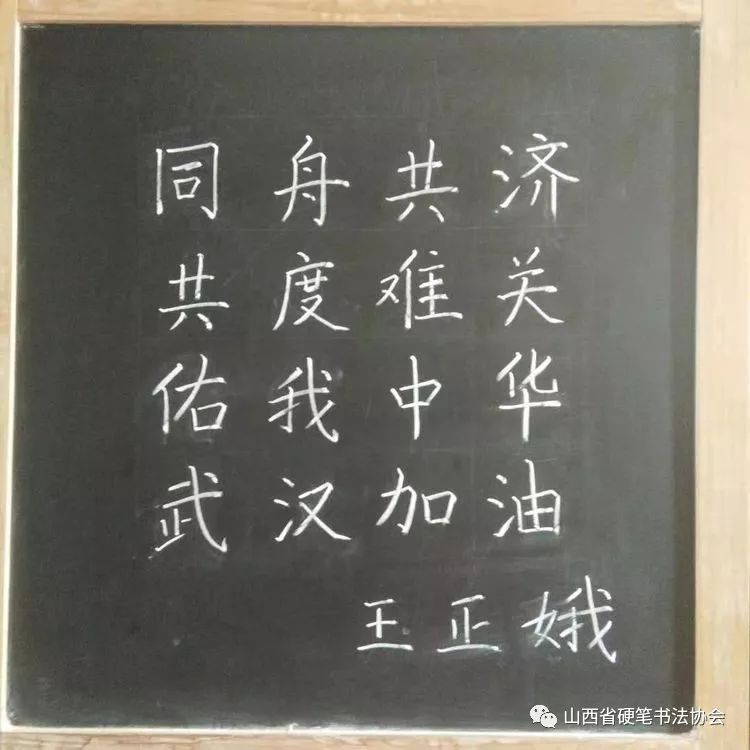 同舟共济
共度难关
佑我中华
武汉加油
王正娥
山西省硬笔书法协会